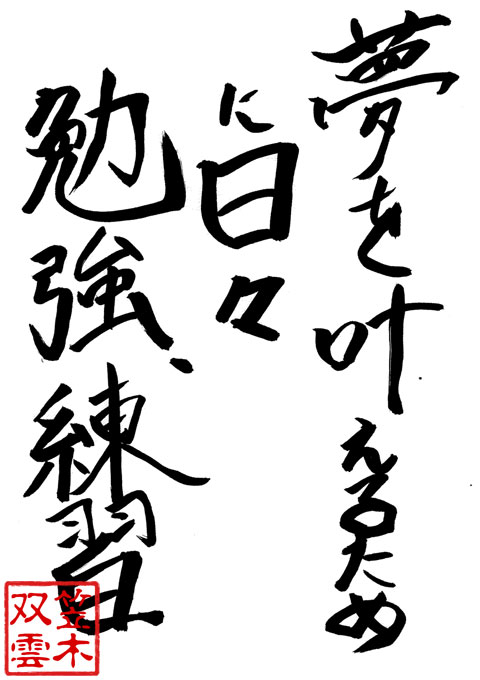 夢を叶えるため
に日々
勉強、練習
笠木
双雲